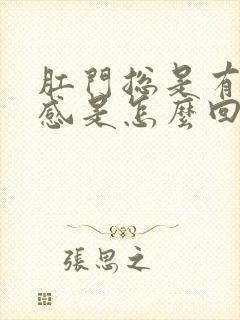 肛門總是有
感是怎麼回
張思之